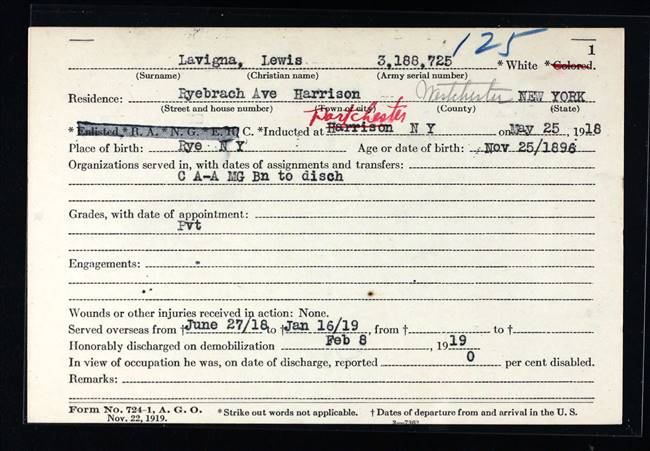 125
1
Lavigna, Lewis 3,188,725 * White * Colored.
(Surname) (Christian name) (Army serial number)
Residence: Ryebrach Ave Harrison Westchester NEW YORK
(Street and house number) (Town or city) (County) (State)
Portchester
* Enlisted,* R. A.* N. G.* E. R. C. *Inducted at Harrison N Y on May 25 , 1918
Place of birth: Rye N Y Age or date of birth: Nov 25/1896
Organizations served in, with dates of assignments and transfers:
C A-A MG Bn to disch
Grades, with date of appointment:
Pvt
Engagements:
Wounds or other injuries received in action: None.
Served overseas from † June 27/18 to † Jan 16/19 , from † to †
Honorably discharged on demobilization Feb 8 , 19 19
In view of occupation he was, on date of discharge, reported 0 per cent disabled.
Remarks:
Form No. 724-1, A. G. O. *Strike out words not applicable. † Dates of departure from and arrival in the U. S.
Nov. 22, 1919.